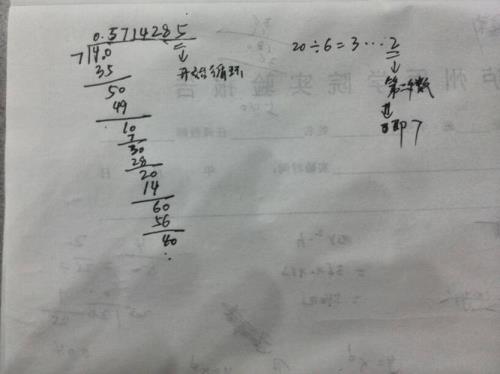 0.5714285
7√4.0
开始循环
35
50
49
10
7
30
28
20
14
60
56
40
20÷6=3…2
第二个数
即7